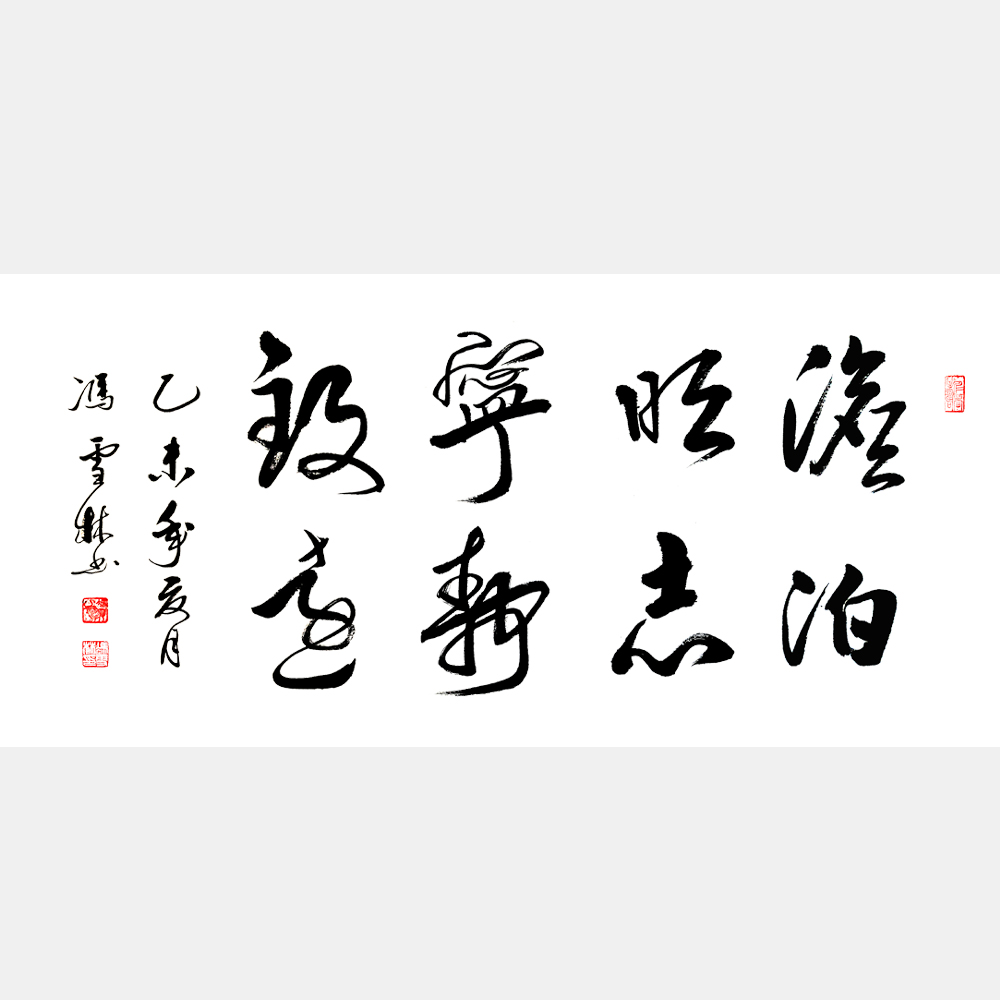 澹泊
明志
寧靜
致遠
乙未年夏月
馮雪林书